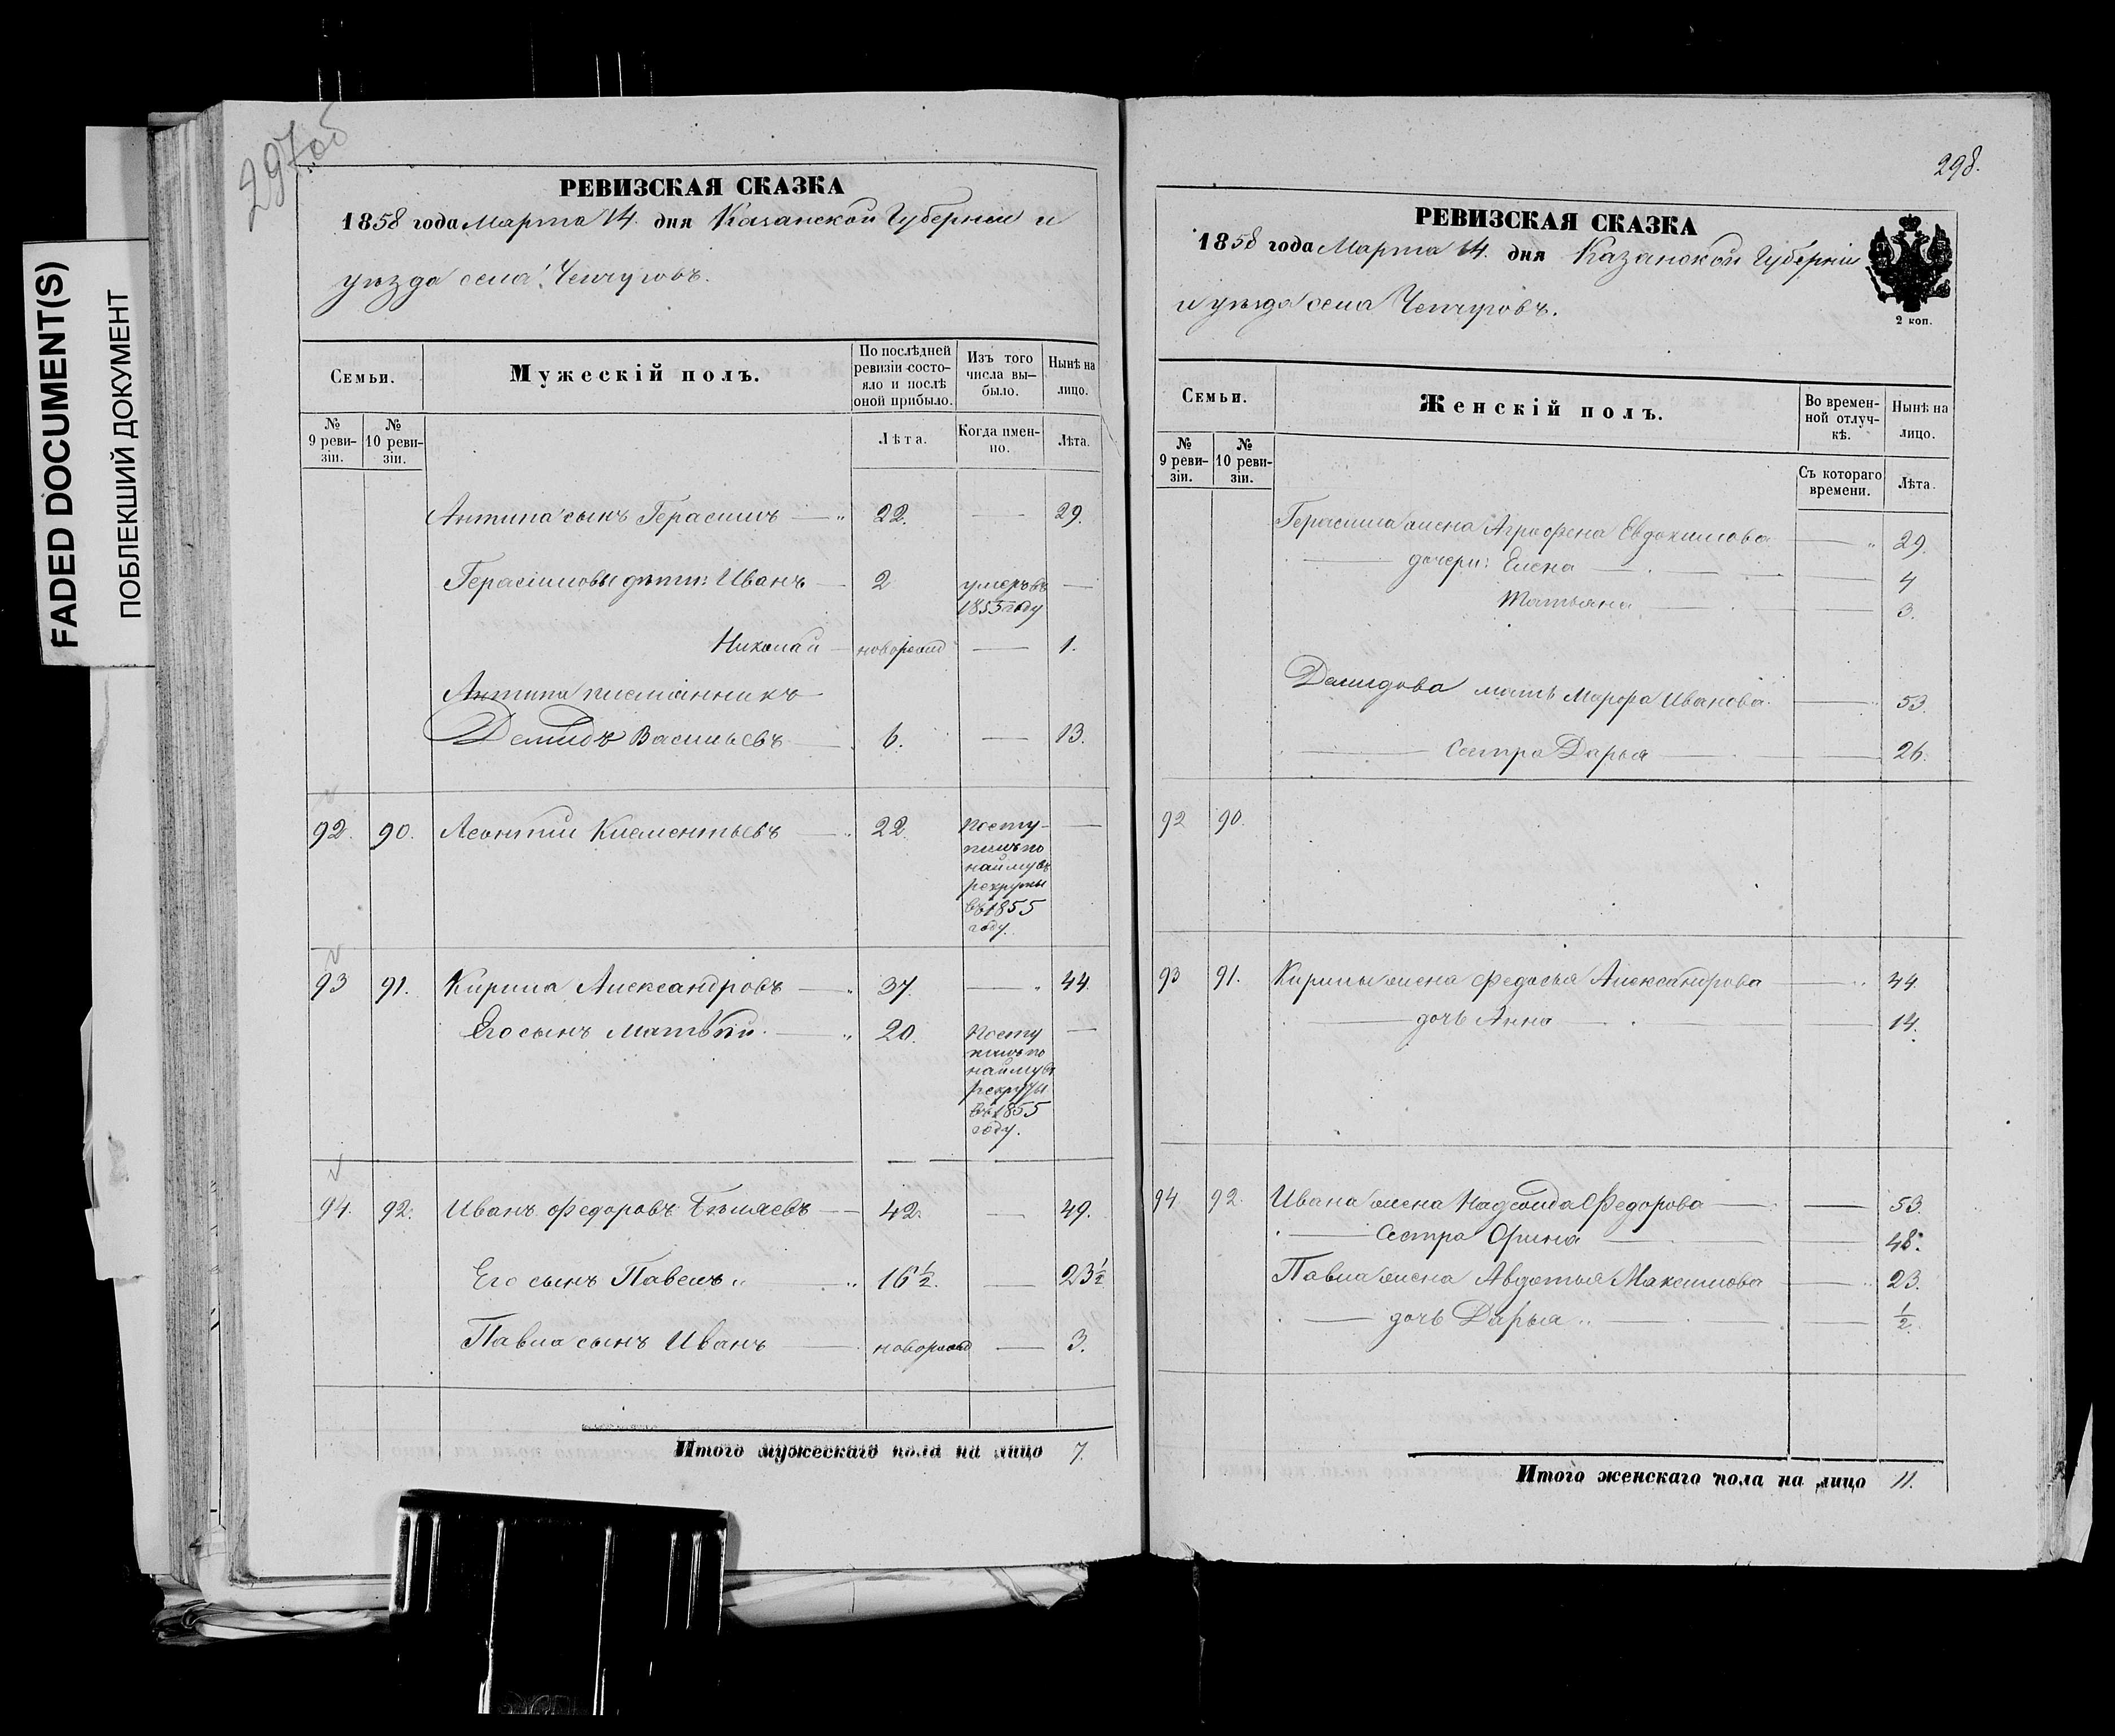 FADED DOCUMENT(S)
ПОБЛЕКШИЙ ДОКУМЕНТ
297об
РЕВИЗСКАЯ СКАЗКА
1858 года Марта 14. дня Казанской Губерніи и
уѣзда села Чепчуговъ.
Семьи.
Мужескій полъ.
По послѣдней ревизіи состояло и послѣ оной прибыло.
Изъ того числа вы-было.
Нынѣ на лицо.
№ 9 реви-зіи.
№ 10 реви-зіи.
Лѣта.
Когда имен-но.
Лѣта.
Антипа сынъ Герасимъ — 22. — 29.
Герасимовы дѣти: Иванъ — 2 умеръ въ 1855 году —
Николай — новорожд — 1.
Антипа племянникъ
Демидъ Васильевъ — 6. — 13.
92. 90. Леонтій Клементьевъ — 22 Посту-пилъ по найму въ рекруты въ 1855 году. —
93 91. Кирила Александровъ — 37. — 44.
Его сынъ Матвѣй — 20. Посту пилъ по найму въ рекруты въ 1855 году. —
94. 92. Иванъ Федоровъ Бѣляевъ — 42. — 49.
Его сынъ Павелъ — 16 1/2. — 23 1/2
Павла сынъ Иванъ — новорожд — 3.
Итого мужескаго пола на лицо 7.
298.
РЕВИЗСКАЯ СКАЗКА
1858 года Марта 14. дня Казанской Губерніи
и уѣзда села Чепчуговъ.
2 коп.
Семьи.
Женскій полъ.
Во времен-ной отлуч-кѣ.
Нынѣ на лицо.
№ 9 реви-зіи.
№ 10 реви-зіи.
Съ котораго времени.
Лѣта.
Герасима жена Аграфена Евдокимова — 29.
— дочери: Елена — 4
Татьяна — 3.
Демидова мать Марфа Иванова — 53.
— Сестра Дарья — 26.
92 90.
93 91. Кирилы жена Федосья Александрова — 44.
— дочь Анна — 14.
94 92. Ивана жена Надежда Федорова — 53.
— Сестра Орина — 48.
Павла жена Авдотья Максимова — 23.
— дочь Дарья — 1/2.
Итого женскаго пола на лицо 11.